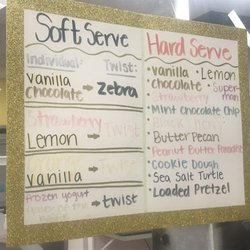 Soft Serve
Individual: Twist:
vanilla
chocolate → zebra
Strawberry
Lemon → Twist
vanilla → Twist
Frozen yogurt
→ twist
Hard Serve
• vanilla • Lemon
• chocolate • Super-
• Strawberry man
• Mint Chocolate Chip
• Butter Pecan
• Peanut Butter Pandemonium
• Cookie Dough
• Sea Salt Turtle
• Loaded Pretzel